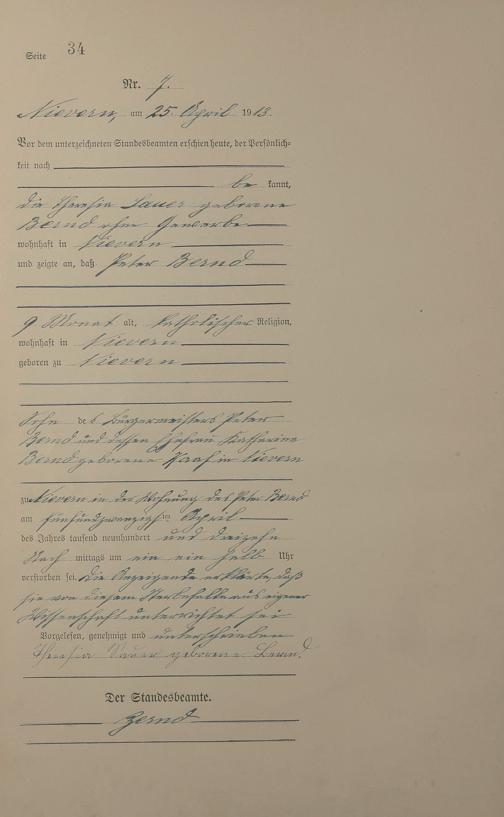 Seite 34
Nr. 7.
Nievern, am 25. April 1913.
Vor dem unterzeichneten Standesbeamten erschien heute, der Persönlich-
keit nach
be kannt,
die Theresia Sauer geborene
Bernd ohne Gewerbe
wohnhaft in Nievern
und zeigte an, daß Peter Bernd
9 Monat alt, katholischer Religion,
wohnhaft in Nievern
geboren zu Nievern
Sohn des Bürgermeisters Peter
Bernd und dessen Ehefrau Katharina
Bernd geborene in Nievern
zu Nievern in der Wohnung des Peter Bernd
am fünfundzwanzigsten April
des Jahres tausend neunhundert und dreizehn
Nach mittags um ein ein halb Uhr
verstorben sei. Die Anzeigende erklärte, daß
sie von diesem Sterbefalle aus eigener
Wissenschaft unterrichtet sei
Vorgelesen, genehmigt und unterschrieben
Theresia Sauer geborene Bernd.
Der Standesbeamte.
Bernd